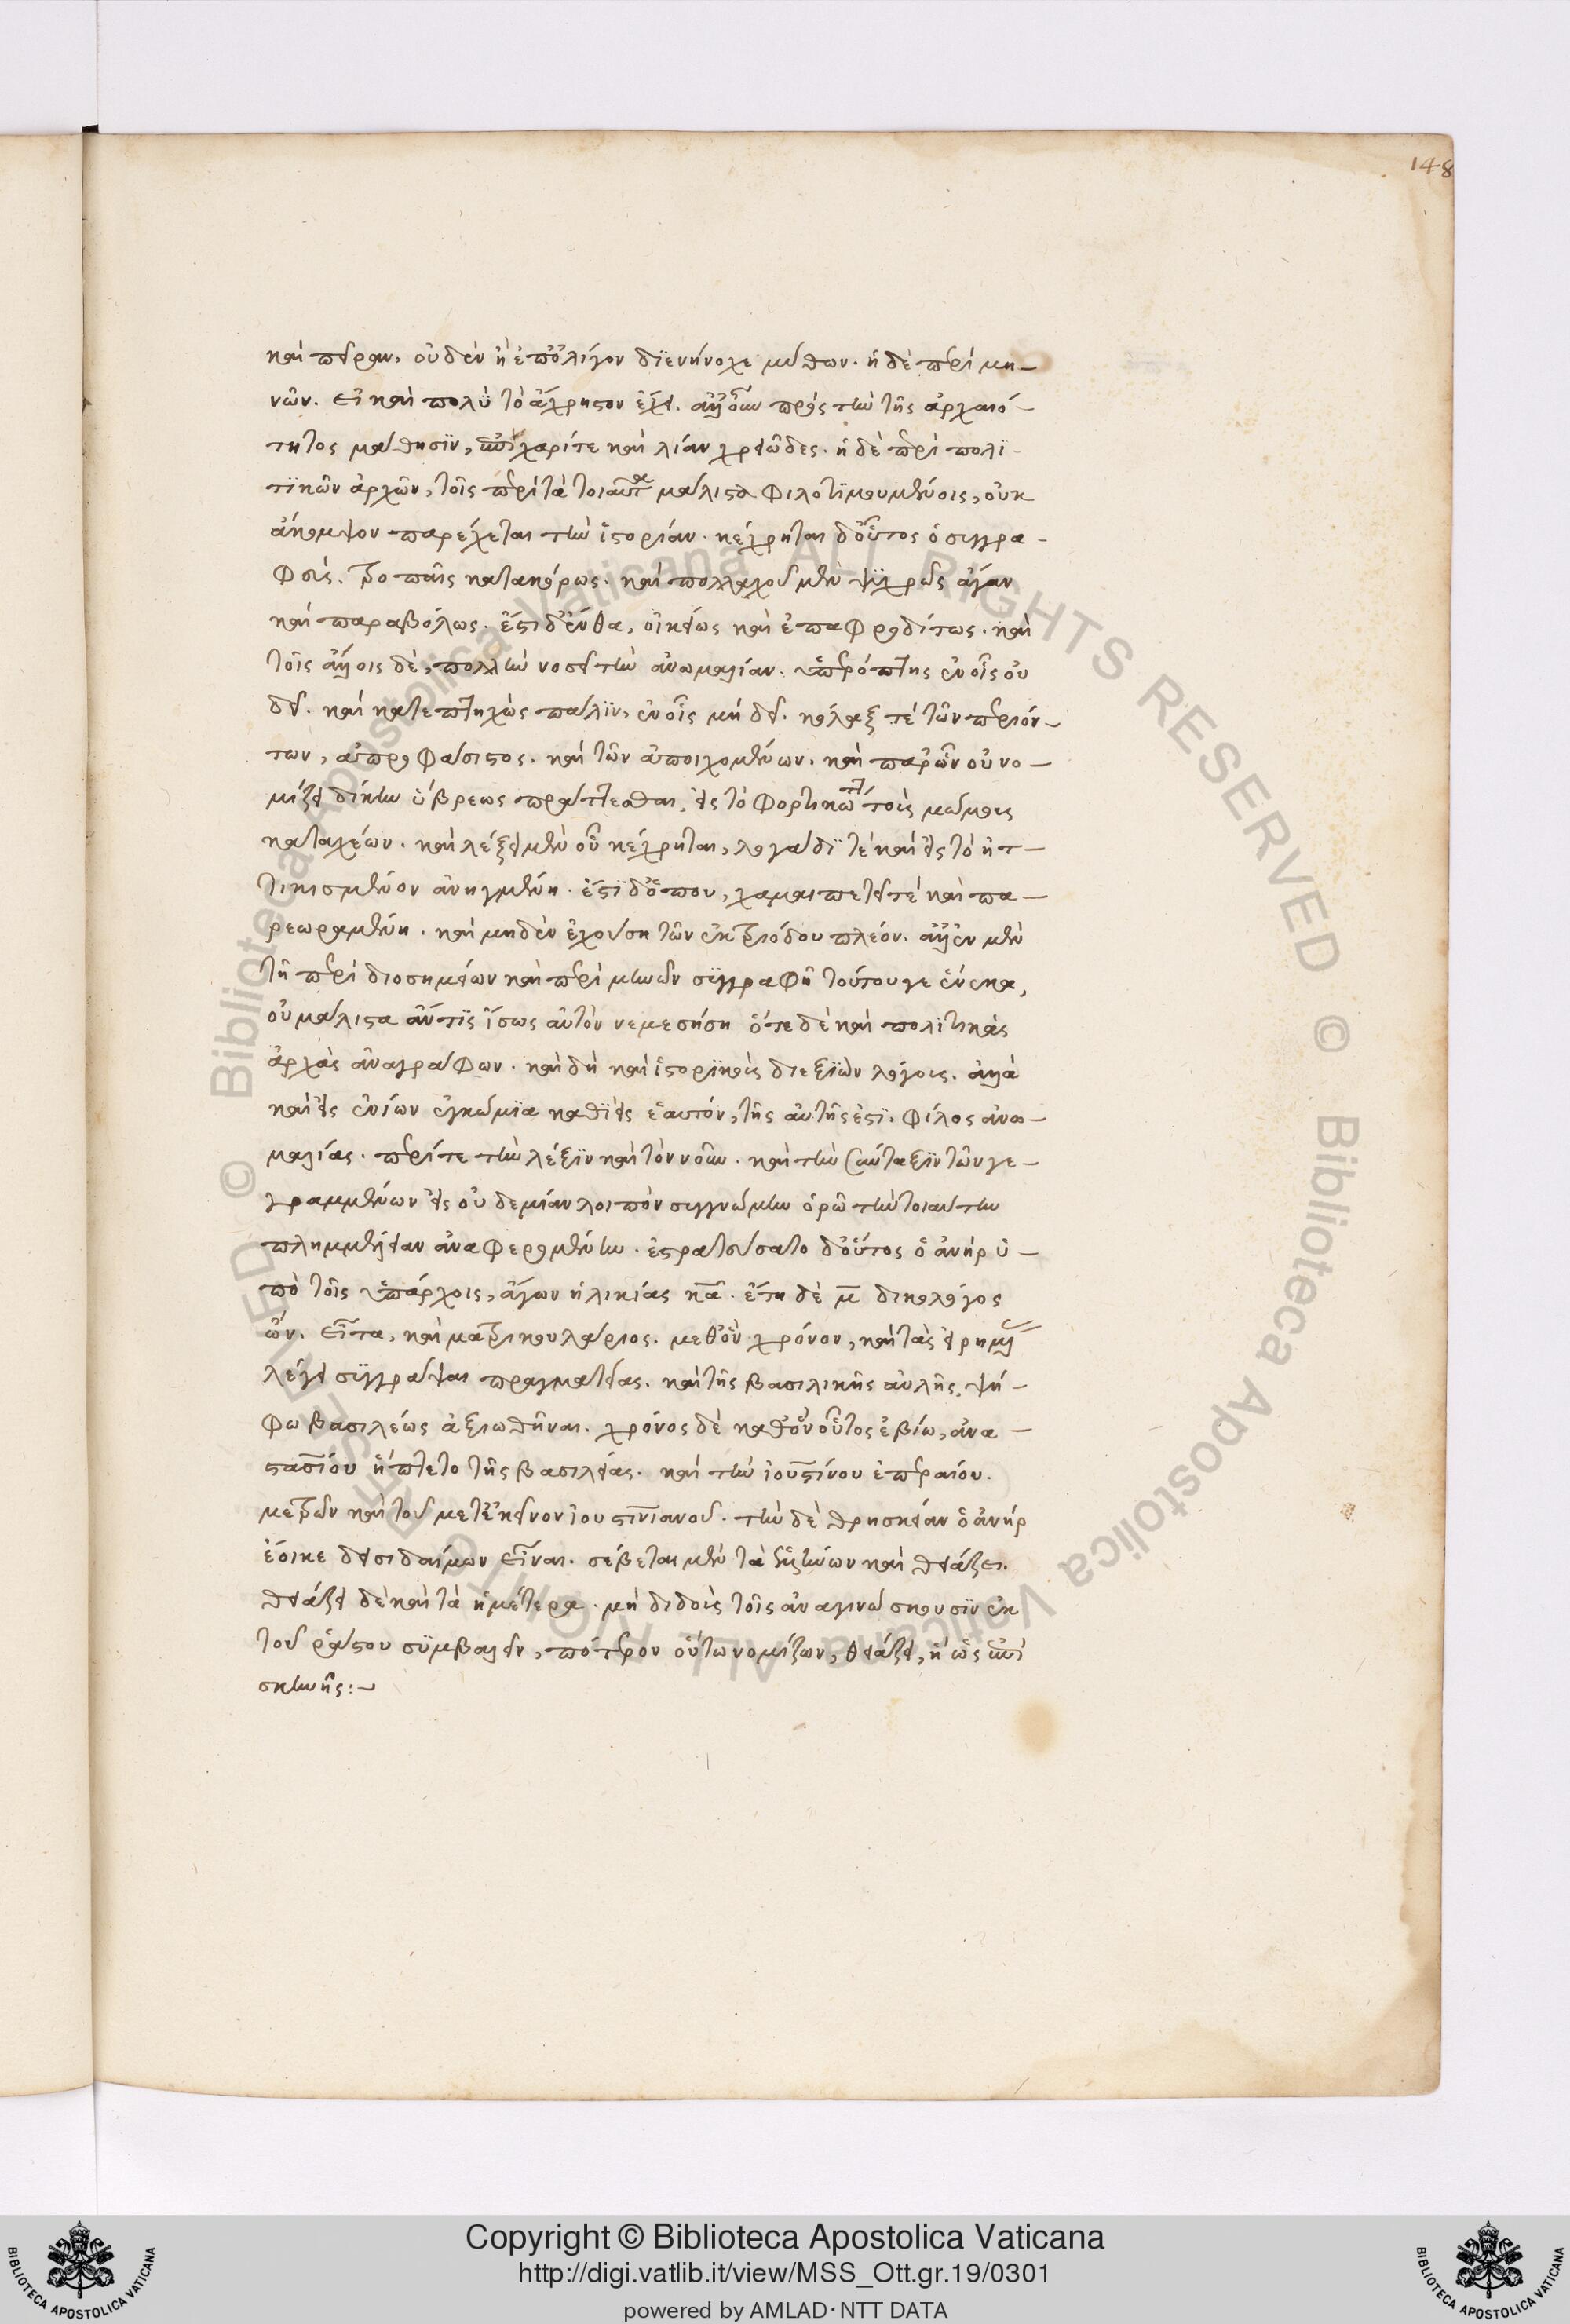 148
καὶ πεῖραν, οὐδὲν ἢ ἐπ' ὀλίγον διενήνοχε μύθων. ἡ δὲ περὶ μη-
νῶν. εἰ καὶ πολὺ τὸ ἄχρηστον ἔχει. ἀλλ' οὖν πρὸς τὴν τῆς ἀρχαιό-
τητος μάθησιν, ἐπίχαρί τε καὶ λίαν χρειῶδες. ἡ δὲ περὶ πολι-
τικῶν ἀρχῶν, τοῖς περὶ τὰ τοιαῦτα μάλιστα φιλοτιμουμένοις, οὐκ
ἄκομψον παρέχεται τὴν ἱστορίαν. κέχρηται δ' οὗτος ὁ συγγρα-
φεύς. τροπαῖς κατακόρως. καὶ πολλαχοῦ μὲν ψυχρῶς ἄγαν
καὶ παραβόλως. ἔστι δ' ἔνθα, οἰκείως καὶ ἐπαφροδίτως. καὶ
τοῖς ἄλλοις δὲ, πολλὴν νοσεῖ τὴν ἀνωμαλίαν. ὑπερόπτης ἐν οἷς οὐ
δεῖ. καὶ κατεπτηχὼς πάλιν, ἐν οἷς μὴ δεῖ. κόλαξ τὲ τῶν περιόν-
των, ἀπροφάσιστος. καὶ τῶν ἀποιχομένων. καὶ παρ' ὧν οὐ νο-
μίζει δίκην ὕβρεως πράττεσθαι, εἰς τὸ φορτικώτ τοὺς μώμους
καταχέων. καὶ λέξει μὲν οὖν κέχρηται, λογάδι τὲ καὶ εἰς τὸ ἠτ-
τικισμένον ἀνηγμένη. ἔστι δ' ὅπου, χαμαιπετεῖ τὲ καὶ πα-
ρεωραμένη. καὶ μηδὲν ἐχούση τῶν ἐκ τριόδου πλέον. ἀλλ' ἐν μὲν
τῆ περὶ διοσημείων καὶ περὶ μηνῶν συγγραφῆ τούτου γε ἕνεκα,
οὐ μάλιστα ἄν τις ἴσως αὐτὸν νεμεσήση ὅτε δὲ καὶ πολιτικὰς
ἀρχὰς ἀναγράφων. καὶ δὴ καὶ ἱστορικοὺς διεξιὼν λόγους. ἀλλὰ
καὶ εἰς ἐνίων ἐγκώμια καθιεὶς ἑαυτόν, τῆς αὐτῆς ἐστι. φίλος ἀνω-
μαλίας. περί τε τὴν λέξιν καὶ τὸν νοῦν. καὶ τὴν σύνταξιν τῶν γε-
γραμμένων εἰς οὐδεμίαν λοιπὸν συγγνώμην ὁρῶ τὴν τοιαύτην
πλημμέλειαν ἀναφερομένην. ἐστρατεύσατο δ' οὗτος ὁ ἀνὴρ ὑ-
πὸ τοῖς ὑπάρχοις, ἄγων ἡλικίας κα. ἔτη δὲ μ δικολόγος
ὤν. εἶτα, καὶ ματρικουλάριος. μεθ' ὃν χρόνον, καὶ τὰς εἰρημέν
λέγει συγγράψαι πραγματείας. καὶ τῆς βασιλικῆς αὐλῆς, ψή-
φω βασιλέως ἀξιωθῆναι. χρόνος δὲ καθ' ὃν οὗτος ἐβίω, ἀνα-
στασίου ἥπτετο τῆς βασιλείας. καὶ τὴν ἰουστίνου ἐπεραίου.
μετρῶν καὶ τοῦ μετ' ἐκεῖνον ἰουστινιανοῦ. τὴν δὲ θρησκείαν ὁ ἀνήρ
ἔοικε δεισιδαίμων εἶναι. σέβεται μὲν τὰ ἑλλήνων καὶ θειάζει.
θειάζει δὲ καὶ τὰ ἡμέτερα. μὴ διδοὺς τοῖς ἀναγινώσκουσιν ἐκ
τοῦ ῥάστου συμβαλεῖν, πότερον οὕτω νομίζων, θειάζει, ἢ ὡς ἐπὶ
σκηνῆς:-
Copyright © Biblioteca Apostolica Vaticana
http://digi.vatlib.it/view/MSS_Ott.gr.19/0301
powered by AMLAD·NTT DATA